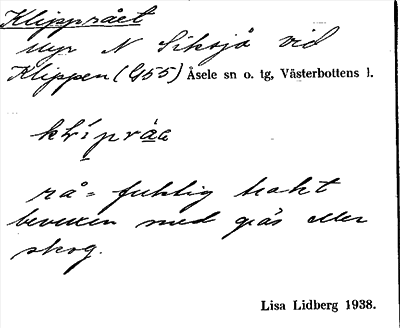 Klipprået
myr N Siksjö vid
Klippen (G55) Åsele sn o. tg, Västerbottens l.
rå = fuktig trakt
bevuxen med gräs eller
skog.
Lisa Lidberg 1938.